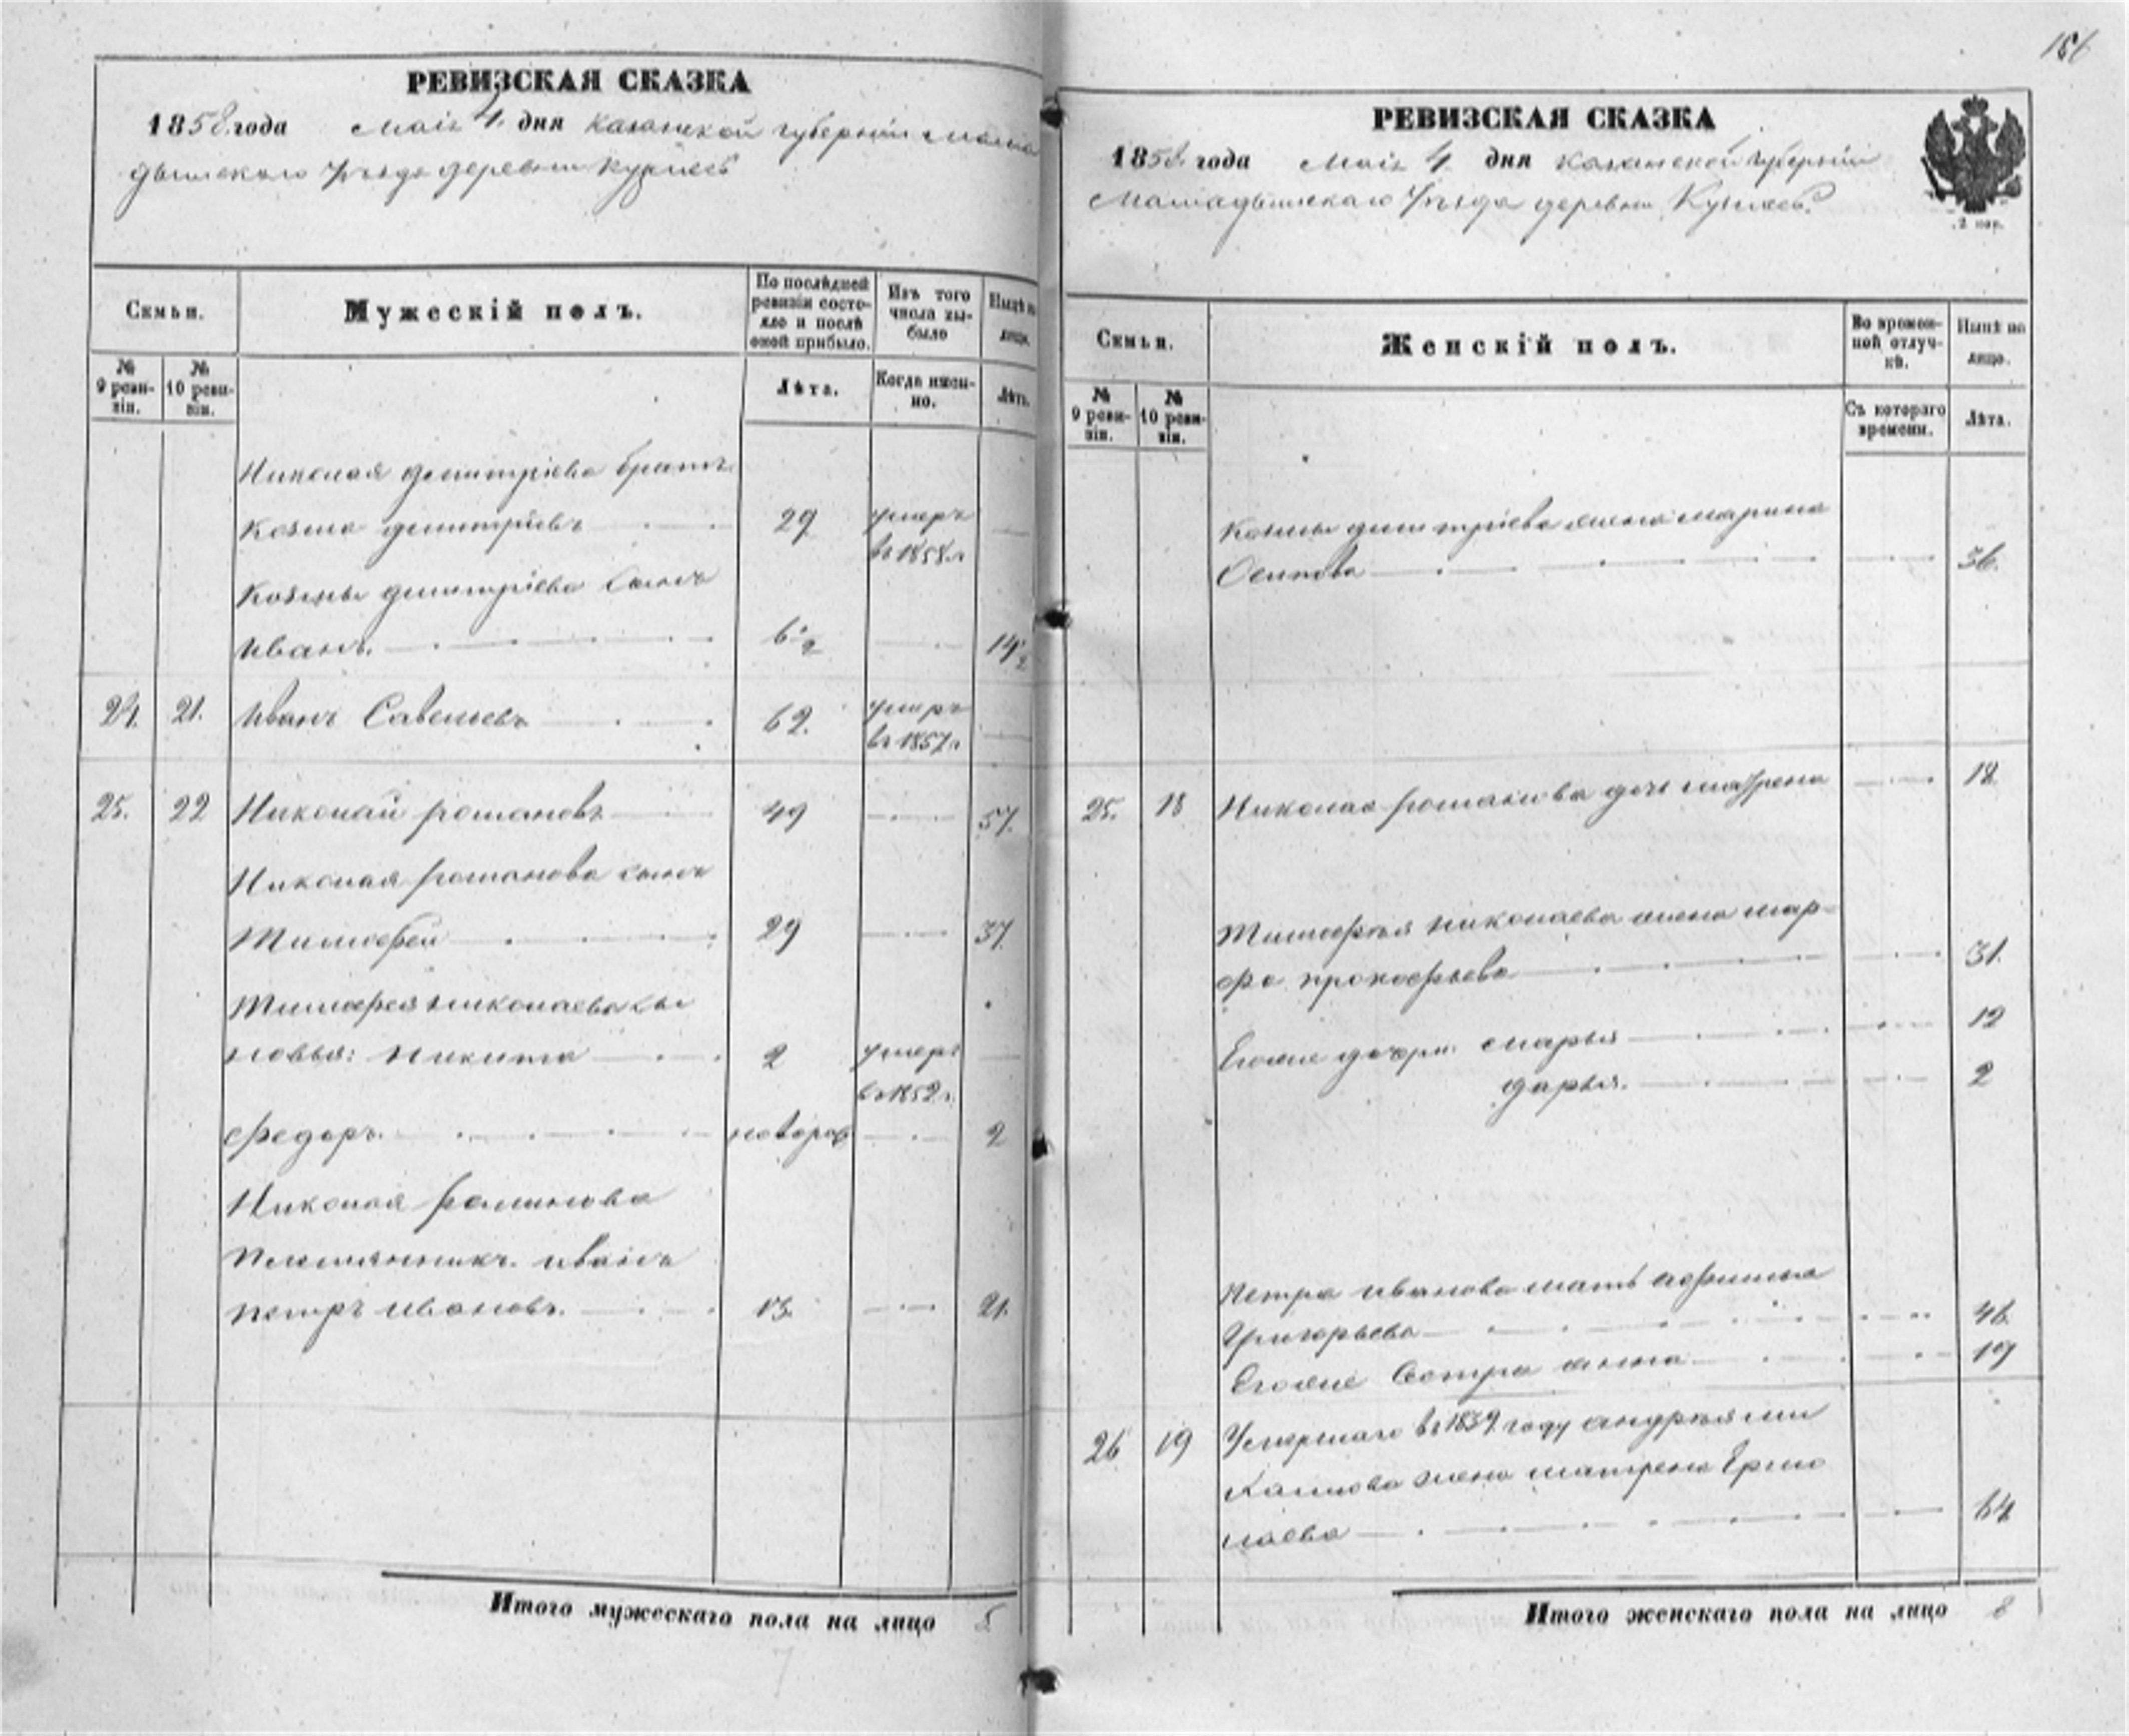 186
РЕВИЗСКАЯ СКАЗКА
1858 года Маія 4 дня Казанской губерніи Мама
дышскаго Уѣзда деревни
Семьи.
Мужескій полъ.
По послѣдней ревизіи состо-
яло и послѣ
оной прибыло.
Изъ того
числа вы-
было
Нынѣ на
лицо.
№
9 реви-
зіи.
№
10 реви-
зіи.
Лѣта.
Когда имен-
но.
Лѣта.
Николая Димитріева братъ
Козма Димитріевъ 29 умеръ
въ 1858 г
Козмы Димитріева сынъ
Иванъ. 6½ 14½
24. 21. Иванъ Савельевъ 62. умеръ
въ 1857 г
25. 22 Николай Романовъ 49 57.
Николая Романова сынъ
Тимофей 29 37.
Тимофея Николаева сы
новья: Никита 2 умеръ
въ 1852 г.
Федоръ. новорож 2
Николая Романова
племянникъ Иванъ
Петръ Ивановъ. 13. 21.
Итого мужескаго пола на лицо 5
РЕВИЗСКАЯ СКАЗКА
1858 года Маія 4 дня Казанской губерніи
Мамадышскаго Уѣзда деревни
2 коп.
Семьи.
Женскій полъ.
Во времен-
ной отлуч-
кѣ.
Нынѣ на
лицо.
№
9 реви-
зіи.
№
10 реви-
зіи.
Съ котораго
времени.
Лѣта.
Козмы Димитріева жена Марина
Осипова 36.
25. 18 Николая Романова дочь Матрена 18
Тимофея Николаева жена Мар-
фа Прокофьева 31.
Егоже дочери Марья 12
Дарья. 2
Петра Иванова мать Афимья
Григорьева 46.
Егоже сестра Анна 19
26 19 Умершаго въ 1839 году Андрея Ми
хайлова жена Матрена Ермо
лаева 64
Итого женскаго пола на лицо 8